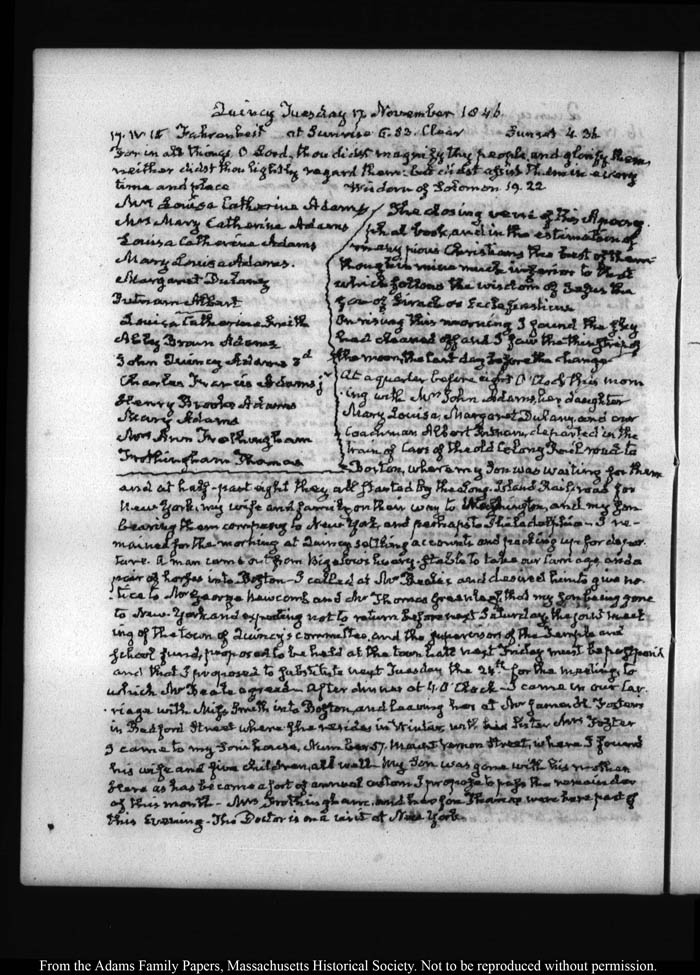 Quincy Tuesday 17. November 1846.
17. IV 15 Fahrenheit at Sunrise 6. 53. Clear Sunset 4. 36
For in all things, O Lord, thou didst magnify thy people, and glorify them,
neither didst thou lightly regard them: but didst assist them in every
time and place Wisdom of Solomon 19. 22
Mrs Louisa Catherine Adams
Mrs Mary Catherine Adams
Louisa Catherine Adams
Mary Louisa Adams.
Margaret Dulany
Putnam Albert
Louisa Catherine Smith
Abby Brown Adams
John Quincy Adams 2d
Charles Francis Adams jr
Henry Brooks Adams
Mary Adams
Mrs Ann Frothingham
Frothingham Thomas
The closing verse of this Apocry
phal book, and in the estimation of
many pious Christians the best of them
though in mine much inferior to that
which follows the wisdom of Jesus the
Son of Sirach or Ecclesiasticus
On rising this morning I found the sky
had cleared off and I saw the thin of
the moon, the last day before the change
At a quarter before eight O'Clock this morn
ing with Mrs John Adams, her daughter
Mary Louisa, Margaret Dulany, and our
Coachman Albert Putnam, departed in the
train of Cars of the old Colony Rail road to
Boston, where my Son was waiting for them
and at half-past eight they all started by the Long-Island Rail-road for
New York, my wife and family on their way to Washington, and my Son
bearing them company to New York, and perhaps to Philadelphia. I re-
mained for the morning at Quincy settling accounts and packing up for depar
ture. A man came out from Bigelow's livery-stable to take our carriage, and a
pair of horses into Boston. I called at Mr Beale's and desired him to give no-
tice to Mr George Newcomb and Mr Thomas Greenleaf, that my Son being gone
to New-York and expecting not to return before next Saturday the joint meet
ing of the town of Quincy's committee, and the supervisors of the Temple and
School fund, proposed to be held at the town hall next Friday must be postponed
and that I proposed to substitute next Tuesday the 24th for the meeting, to
which Mr Beale agreed. After dinner at 4 O'Clock I came in our Car
riage with Miss Smith into Boston, and leaving her at Mr James H Foster's
in Bedford Street where she resides in Winter, with her Sister Mrs Foster
I came to my Son's house, Number 57. Mount Vernon Street, where I found
his wife and five Children, all well. My Son was gone with his mother.
Here as has become a sort of annual custom I propose to pass the remainder
of this month. Mrs Frothingham and her son Thomas were here part of
this Evening. The Doctor is on a visit at New York.
From the Adams Family Papers, Massachusetts Historical Society. Not to be reproduced without permission.